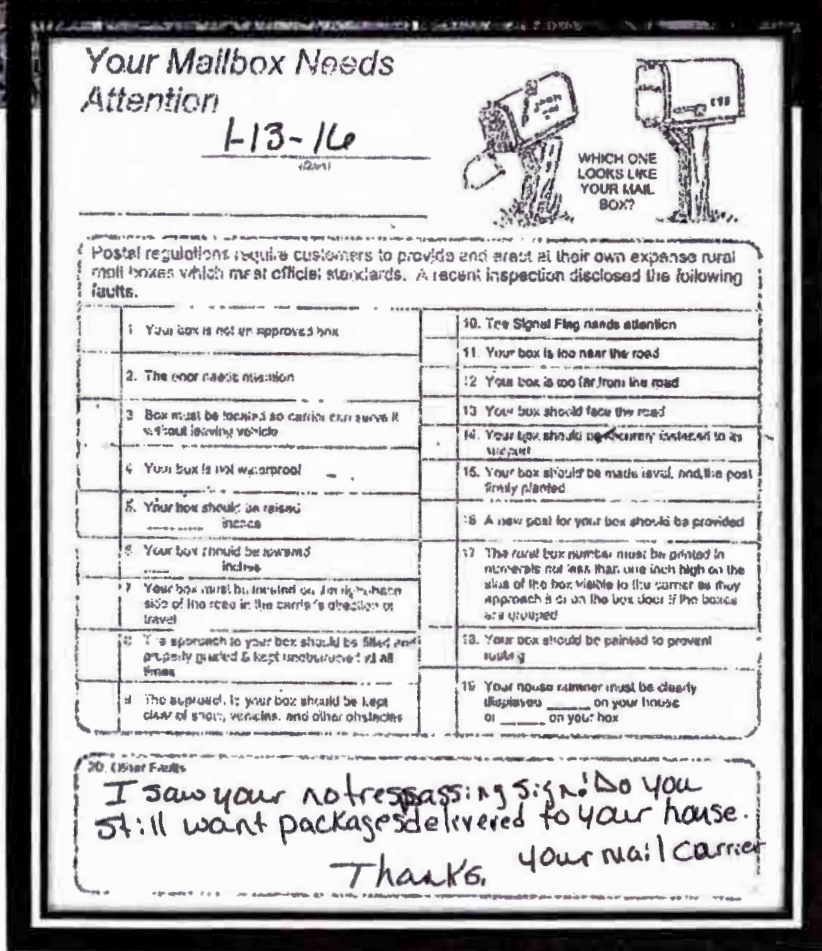 Your Mailbox Needs
Attention
1-13-16
(Date)
WHICH ONE
LOOKS LIKE
YOUR MAIL
BOX?
Postal regulations require customers to provide and erect at their own expense rural
mail boxes which meet official standards. A recent inspection disclosed the following
faults.
1. Your box is not an approved box
2. The door needs attention
3. Box must be located so carrier can serve it
without leaving vehicle
4. Your box is not waterproof
5. Your box should be raised
______ inches
6. Your box should be lowered
______ inches
7. Your box must be located on the right-hand
side of the road in the carrier's direction of
travel
8. The approach to your box should be filled and
properly graded & kept unobstructed at all
times
9. The approach to your box should be kept
clear of snow, vehicles, and other obstacles
10. The Signal Flag needs attention
11. Your box is too near the road
12. Your box is too far from the road
13. Your box should face the road
14. Your box should be securely fastened to its
support
15. Your box should be made level, and the post
firmly planted
16. A new post for your box should be provided
17. The rural box number must be printed in
numerals not less than one inch high on the
side of the box visible to the carrier as they
approach it or on the box door if the boxes
are grouped
18. Your box should be painted to prevent
rusting
19. Your house number must be clearly
displayed ______ on your house
or ______ on your box
20. Other Faults
I saw your no trespassing sign! Do you
still want packages delivered to your house.
Thanks, your mail carrier